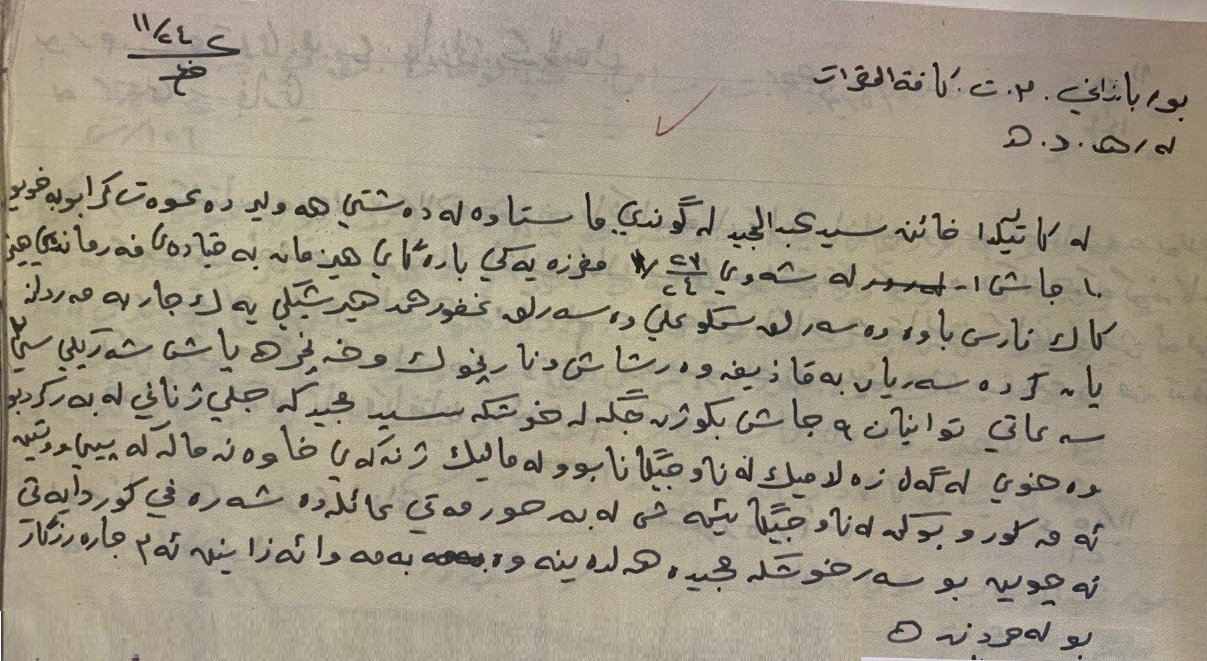 ١١/٢٤ ح
بو/ بارزاني. م. ت. كافة المقرات
له/ هـ. د. ه
له كاتيكدا خائن سيد عبدالمجيد له گوندي ما ستاوه له ده شتي هه ولير ده عوه ت كرابو به خوي و
١٠ جاشي له شه وي ٢٤/٢٣ مفرزه يه كي باره گاي هيزمان به قياده ي فه رمانده ي هيز
كاك فارس باوه و سه ر لق سمكو علي و سه ر لق غفور هيرشيكي يه ك جار به مه ردانه
يان كرده سه ريان به قاذيفه وه رشاش و نارنجوك و خه نجر پاش شه ريكي سي
سه عاتي توانيان ٩ جاش بكوژن جگه له خوشكه سيد مجيد كه جلي ژناني له به ر كردبو
وه خوي له گه ل زه لاميك له ناو جيگا نابوو له ماليك ژنه كه ي خاوه نه ماله كه پيي ووتين
ئه مه كور و بوكه له ناو جيگا ئيمه ش له به ر حورمه تي عائله و شه ره في كوردايه تي
نه چوين بو سه ر خوشكه مجيد هه لده ينه وه به مه وا ئه زانين ئه م جاره رزگار
بو له مردنه ه